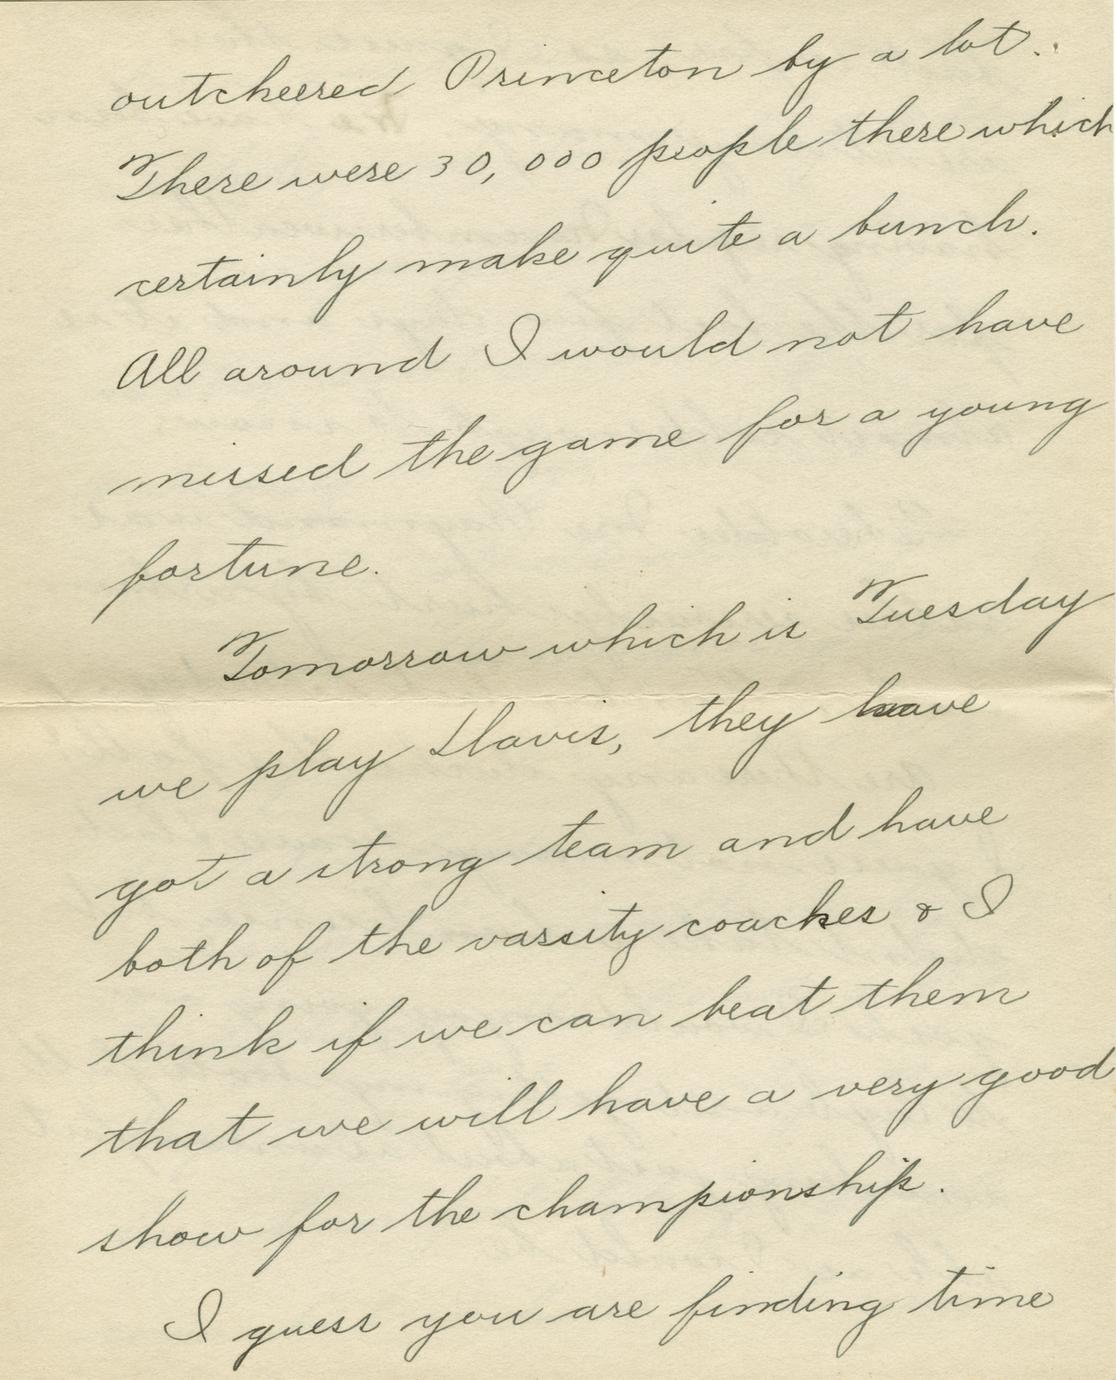 outcheered Princeton by a lot.
There were 30,000 people there which
certainly make quite a bunch.
All around I would not have
missed the game for a young
fortune.
Tomorrow which is Tuesday
we play Davis, they have
got a strong team and have
both of the varsity coaches & I
think if we can beat them
that we will have a very good
show for the championship.
I guess you are finding time